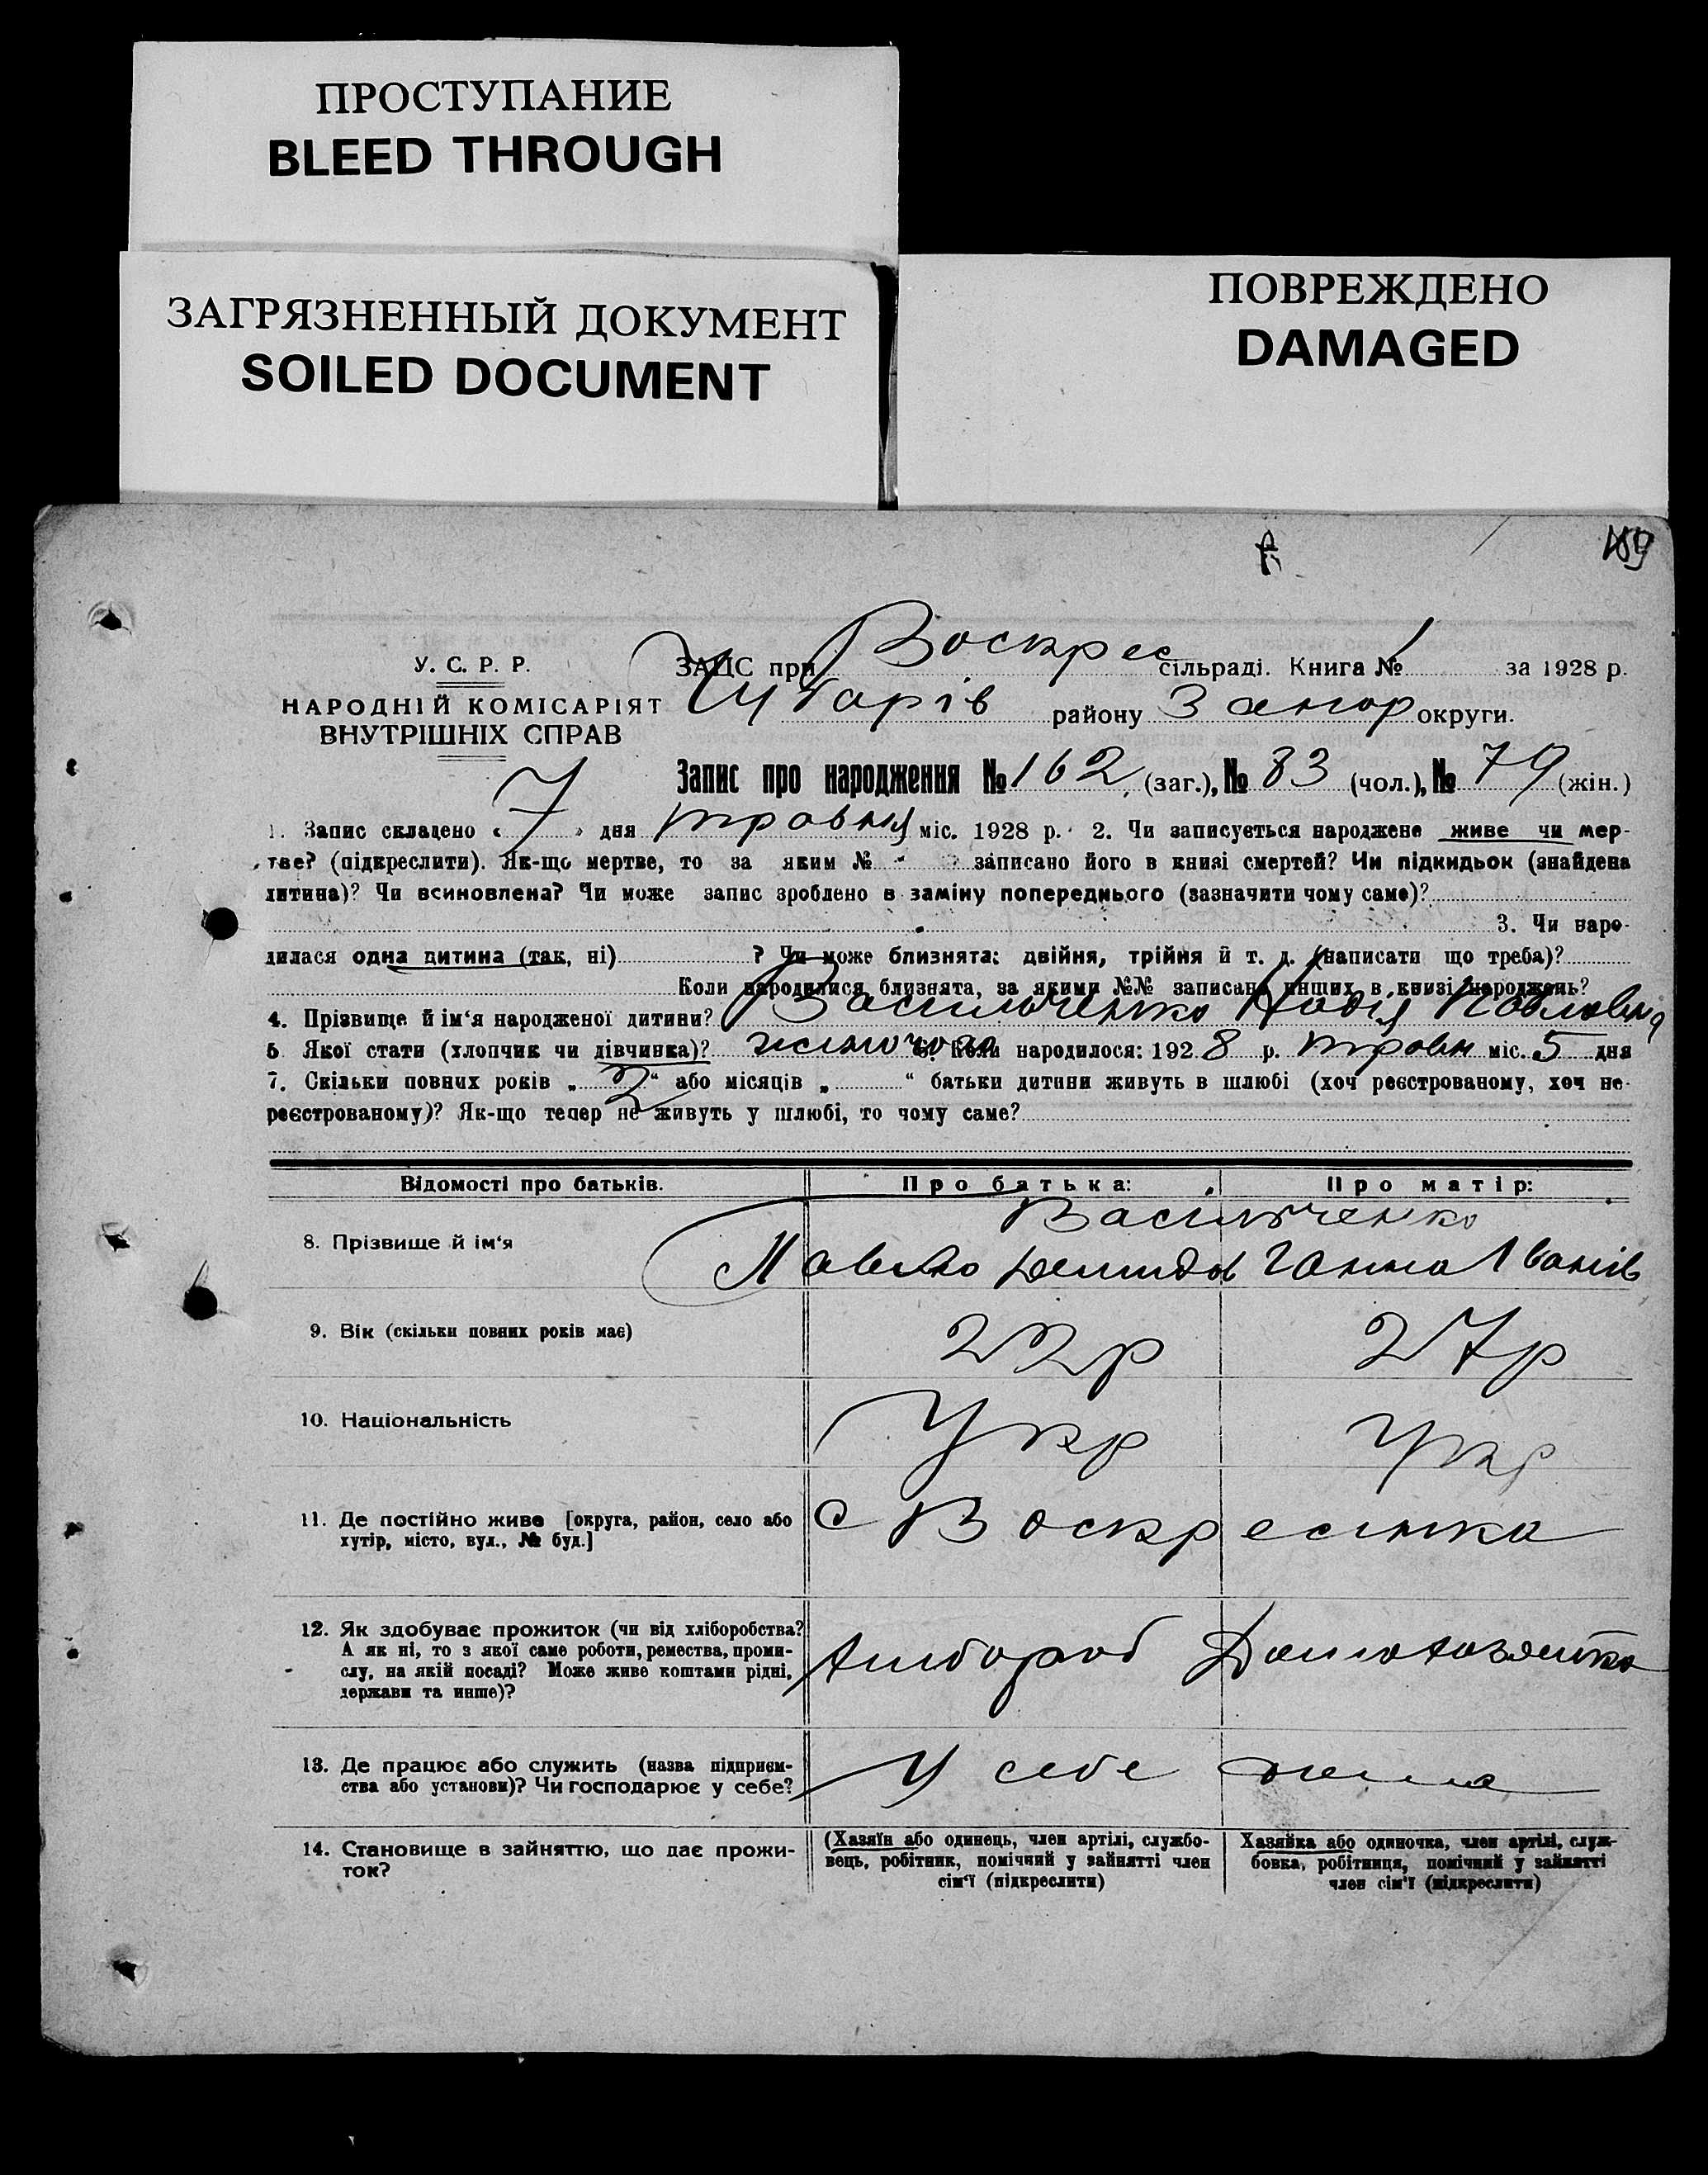 ПРОСТУПАНИЕ
BLEED THROUGH
ЗАГРЯЗНЕННЫЙ ДОКУМЕНТ
SOILED DOCUMENT
ПОВРЕЖДЕНО
DAMAGED
У. С. Р. Р.
НАРОДНІЙ КОМІСАРІЯТ
ВНУТРІШНІХ СПРАВ
ЗАЦС при Воскрес сільраді. Книга № 1 за 1928 р.
району Запор округи.
Запис про народження № 162 (заг.), № 83 (чол.), № 79 (жін.)
1. Запис складено « 7 » дня травня міс. 1928 р. 2. Чи записується народжене живе чи мер-
тве? (підкреслити). Як-що мертве, то за яким № записано його в книзі смертей? Чи підкидьок (знайдена
дитина)? Чи всиновлена? Чи може запис зроблено в заміну попереднього (зазначити чому саме)?
3. Чи наро-
дилася одна дитина (так, ні) ? Чи може близнята: двійня, трійня й т. д. (написати що треба)?
Коли народилися близнята, за якими №№ записано инших в книзі народжень?
4. Прізвище й ім‘я народженої дитини? Васильченко Надія Павловна
5 Якої стати (хлопчик чи дівчинка)? жіночого 6. Коли народилося: 192 8 р. травн міс. 5 дня
7. Скільки повних років „ 2 “ або місяців „ “ батьки дитини живуть в шлюбі (хоч реєстрованому, хоч не-
реєстрованому)? Як-що тепер не живуть у шлюбі, то чому саме?
Відомості про батьків. Про батька: Про матір:
Васильченко
8. Прізвище й ім‘я Павло Демидов Ганна Іванів
9. Вік (скільки повних років має) 22р 27р
10. Національність Укр Укр
11. Де постійно живе [округа, район, село або
хутір, місто, вул., № буд.] с Воскресінка
12. Як здобуває прожиток (чи від хліборобства?
А як ні, то з якої саме роботи, ремества, проми-
слу, на якій посаді? Може живе коштами рідні,
держави та инше)? Хлібороб Домохозяйка
13. Де працює або служить (назва підприєм-
ства або установи)? Чи господарює у себе? У себе дома
14. Становище в зайняттю, що дає прожи-
ток?
(Хазяїн або одинець, член артілі, службо-
вець, робітник, помічний у зайнятті член
сім'ї (підкреслити)
Хазяйка або одиночка, член артілі, служ-
бовка, робітниця, помічний у зайнятті
член сім'ї (підкреслити)